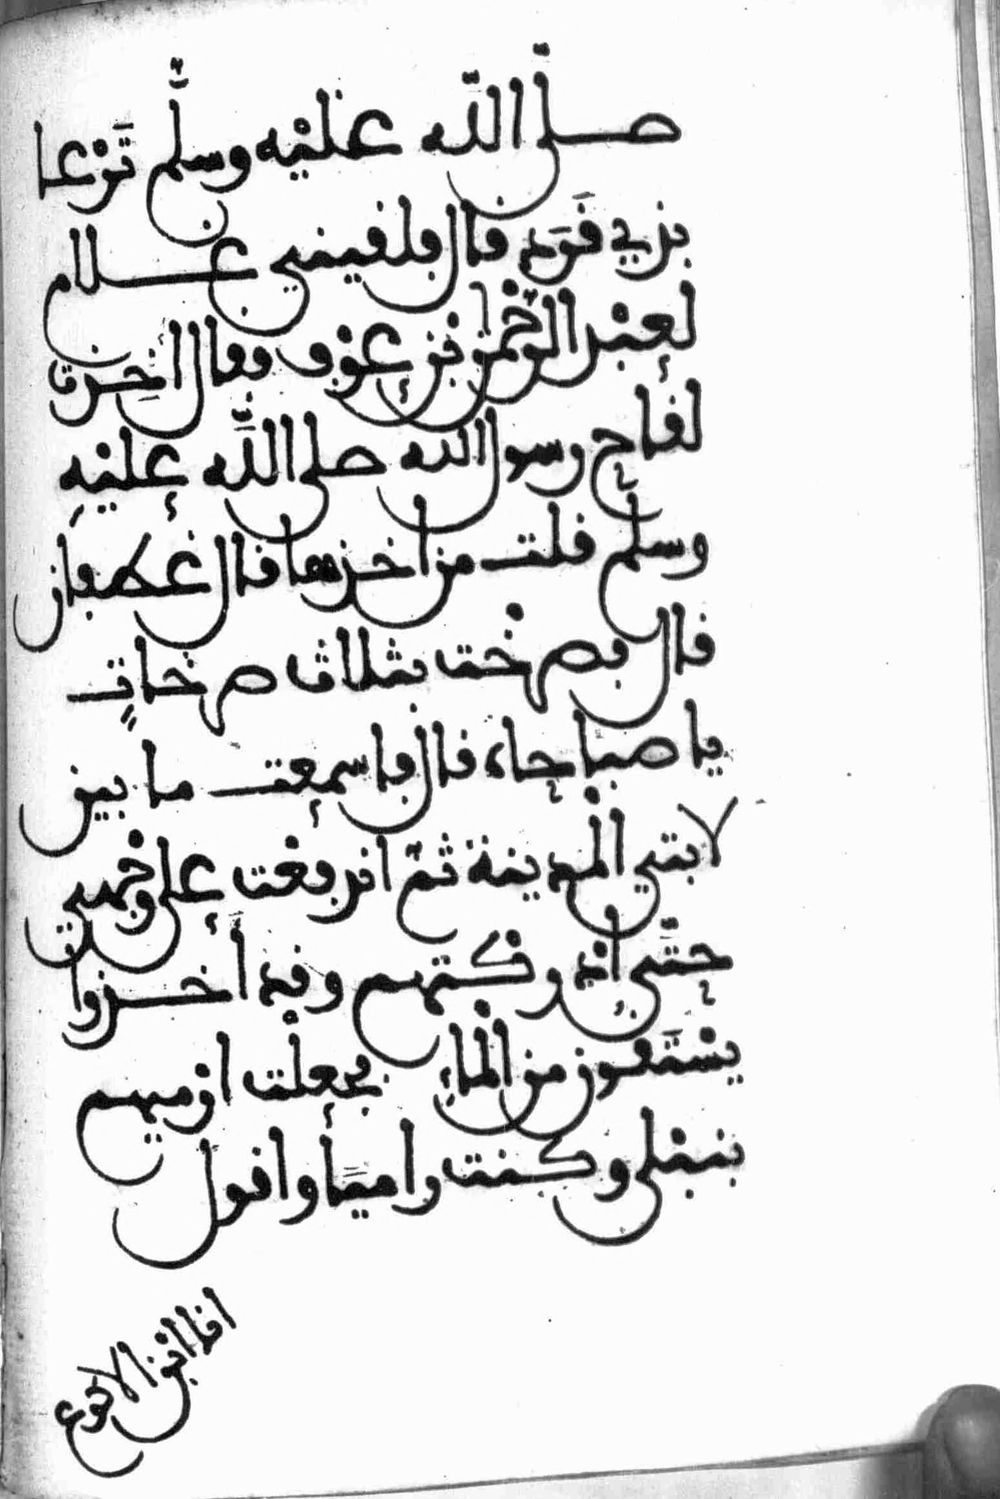 صلى الله عليه وسلم ترعا
بذي قرد قال فلقيني غلام
لعبد الرحمن بن عوف فقال أخذت
لقاح رسول الله صلى الله عليه
وسلم قلت من اخذها قال غطفان
قال فصرخت بثلاث صرخات
يا صباحاه قال فاسمعت ما بين
لابتي المدينة ثم اندفعت على وجهي
حتى ادركتهم وقد أخذوا
يستقون من الماء فجعلت ارميهم
بنبلي وكنت راميا واقول
انا ابن الاكوع